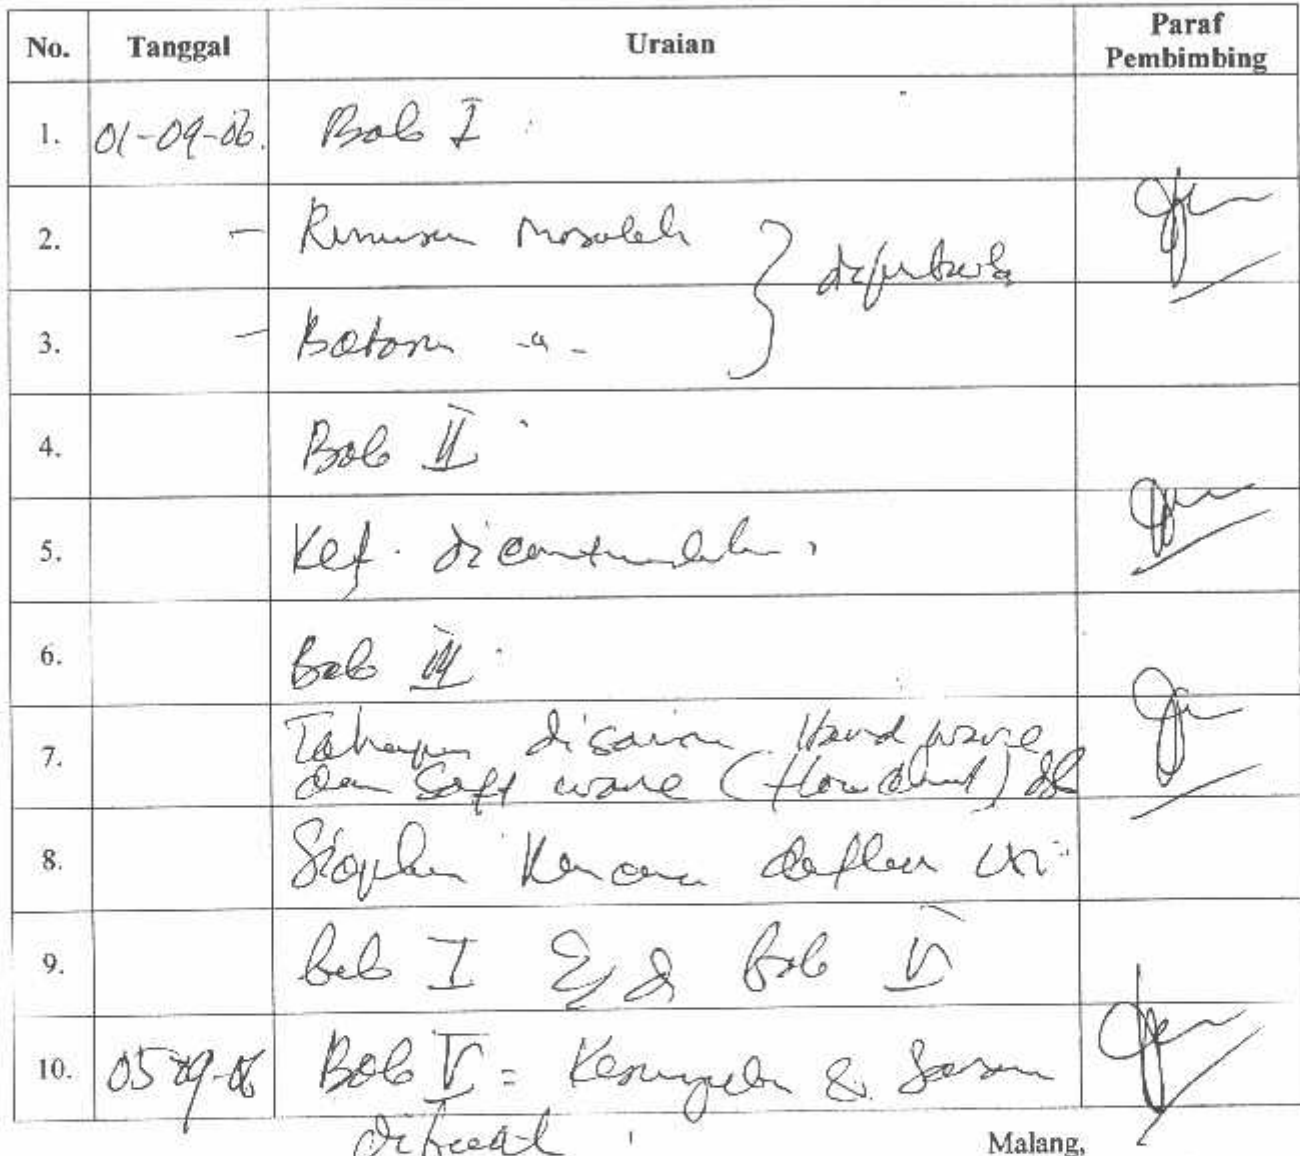 No. Tanggal Uraian Paraf Pembimbing
1. 01-09-06. Bab I
2. - Rumusan Masalah } diperbaiki
3. - Batasan -"-
4. Bab II
5. Ref. dicantumkan
6. Bab III
7. Tahapan disain Hard ware
dan Soft ware (flow chart)
8. Siapkan daftar
9. Bab I Bab V
10. 05-09-06 Bab V = Kesimpulan & Saran
dibuat
Malang,